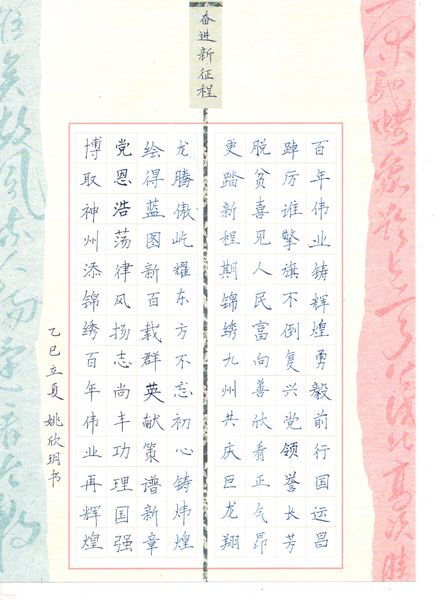 奋进新征程
百年伟业铸辉煌勇毅前行国运昌
踔厉谁擎旗不倒复兴党领誉长芳
脱贫喜见人民富向善欣看正气昂
更踏新程期锦绣九州共庆巨龙翔
龙腾傲屹耀东方不忘初心铸炜煌
绘得蓝图新百载群英献策谱新章
党恩浩荡律风扬志尚丰功理国强
博取神州添锦绣百年伟业再辉煌
乙巳立夏 姚欣玥书